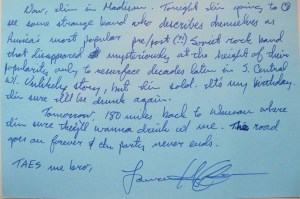 Now, I'm in Madison. Tonight I'm going to
see some strange band who describes themselves as
Russia's most popular pre/post (?!) Soviet rock band
that disappeared mysteriously at the height of their
popularity only to resurface decades later in S. Central
WI. Unlikely story, but I'm sold. It's my birthday.
I'm sure I'll be drunk again.
Tomorrow, 180 miles back to Wausau where
I'm sure they'll wanna drink w/ me. The road
goes on forever & the party never ends.
TAES me bro,